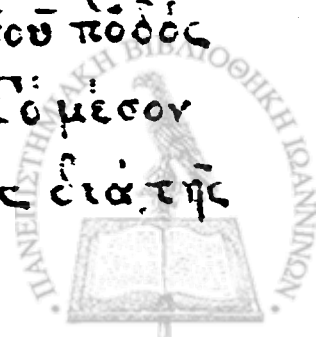 τοῦ ποδός
τὸ μέσον
ς διὰ τῆς
ΠΑΝΕΠΙΣΤΗΜΙΑΚΗ ΒΙΒΛΙΟΘΗΚΗ ΙΩΑΝΝΙΝΩΝ